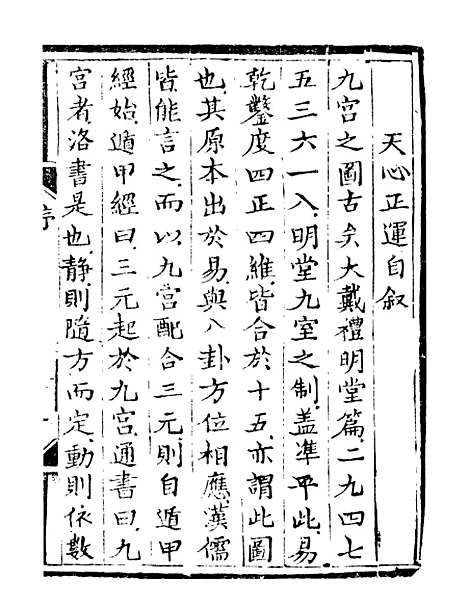 天心正運自叙
九宫之圖古矣大戴禮明堂篇二九四七
五三六一八明堂九室之制盖準乎此易
乾鑿度四正四維皆合於十五亦謂此圖
也其原本出於易與八卦方位相應漢儒
皆能言之而以九宫配合三元則自遁甲
經始遁甲經曰三元起於九宫通書曰九
宫者洛書是也静則隨方而定動則依數
序
一